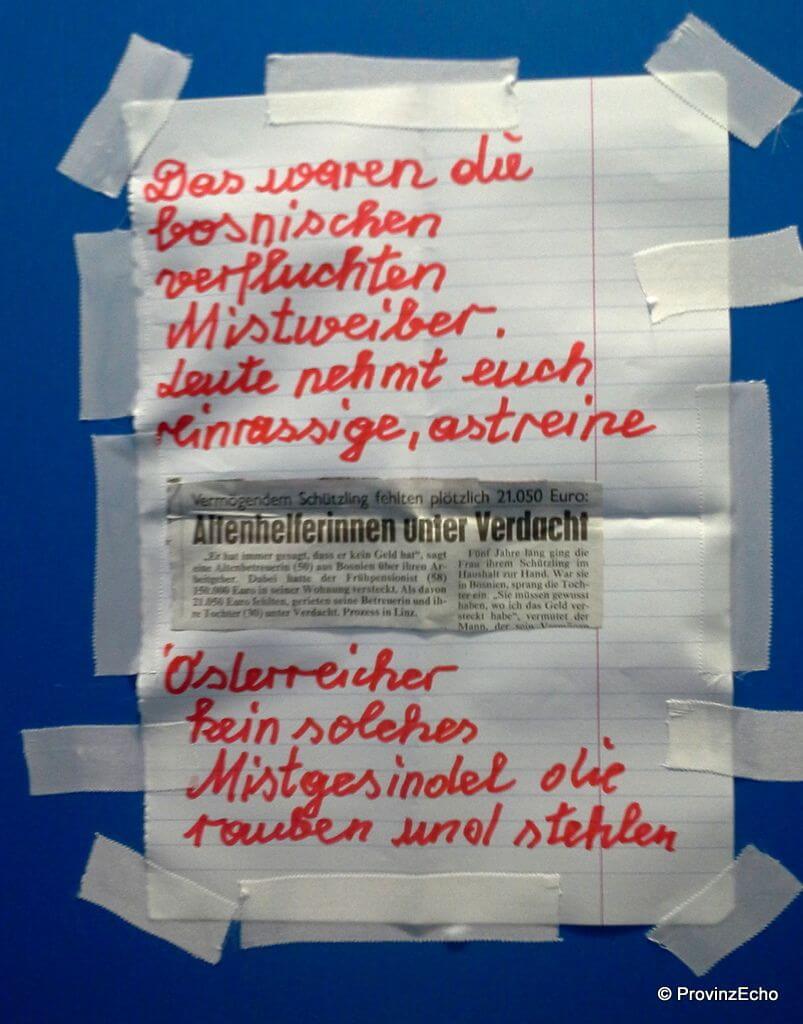 Das waren die
bosnischen
verfluchten
Mistweiber.
Leute nehmt euch
reinrassige, astreine
Vermögendem Schützling fehlten plötzlich 21.050 Euro:
Altenhelferinnen unter Verdacht
„Er hat immer gesagt, dass er kein Geld hat“, sagt
eine Altenbetreuerin (50) aus Bosnien über ihren Ar-
beitgeber. Dabei hatte der Frühpensionist (58)
150.000 Euro in seiner Wohnung versteckt. Als davon
21.050 Euro fehlten, gerieten seine Betreuerin und ih-
re Tochter (30) unter Verdacht. Prozess in Linz.
Fünf Jahre lang ging die
Frau ihrem Schützling im
Haushalt zur Hand. War sie
in Bosnien, sprang die Toch-
ter ein. „Sie müssen gewusst
haben, wo ich das Geld ver-
steckt habe“, vermutet der
Mann, der sein Vermögen
Österreicher
kein solches
Mistgesindel die
rauben und stehlen
© ProvinzEcho